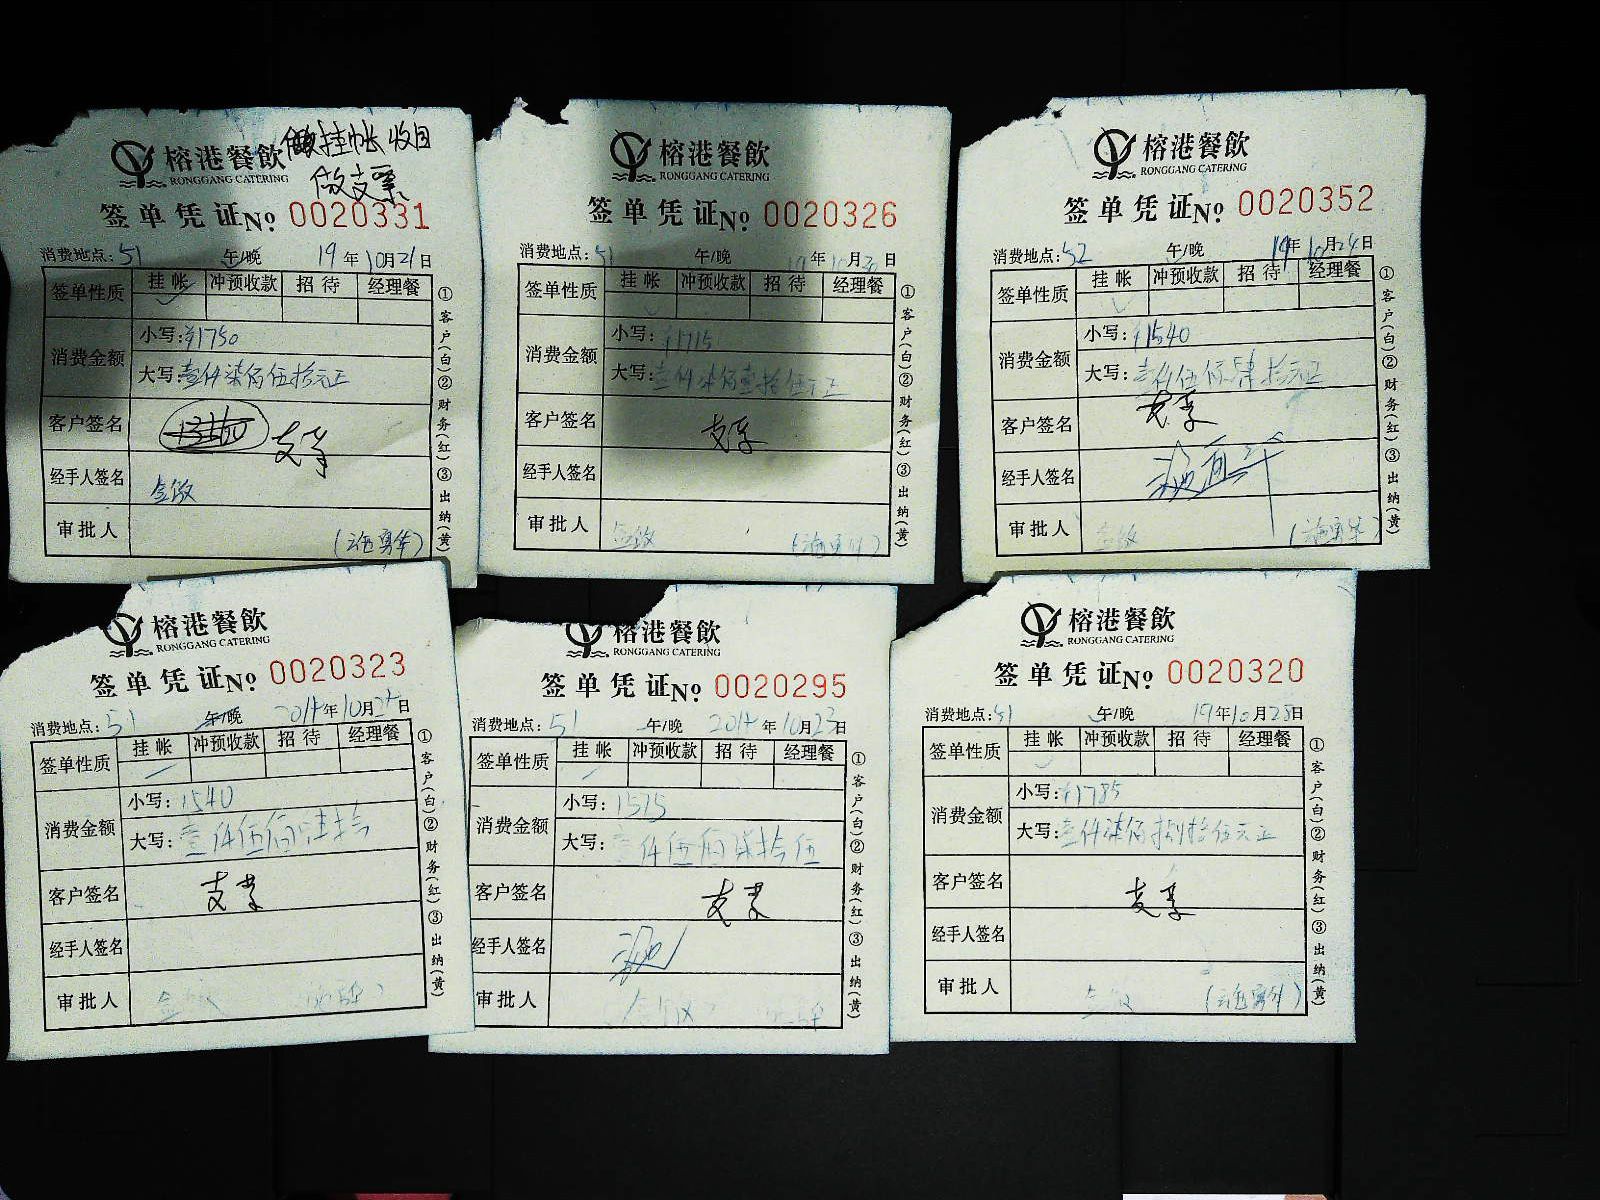 做挂帐收目
做支票
榕港餐飲
RONGGANG CATERING
签单凭证No. 0020331
消费地点: 51 午/晚 19年10月21日
签单性质 挂帐 冲预收款 招待 经理餐
消费金额 小写: ¥1750
大写: 壹仟柒佰伍拾元正
客户签名 支票
经手人签名 金敏
审批人
①客户(白)②财务(红)③出纳(黄)
榕港餐飲
RONGGANG CATERING
签单凭证No. 0020326
消费地点: 51 午/晚 年 月 日
签单性质 挂帐 冲预收款 招待 经理餐
消费金额 小写: ¥1715
大写: 壹仟柒佰壹拾伍元正
客户签名 支票
经手人签名
审批人 金敏
①客户(白)②财务(红)③出纳(黄)
榕港餐飲
RONGGANG CATERING
签单凭证No. 0020352
消费地点: 52 午/晚 19年10月24日
签单性质 挂帐 冲预收款 招待 经理餐
消费金额 小写: ¥1540
大写: 壹仟伍佰肆拾元正
客户签名 支票
经手人签名
审批人 金敏
①客户(白)②财务(红)③出纳(黄)
榕港餐飲
RONGGANG CATERING
签单凭证No. 0020323
消费地点: 51 午/晚 年10月 日
签单性质 挂帐 冲预收款 招待 经理餐
消费金额 小写: 1540
大写: 壹仟伍佰 拾
客户签名 支票
经手人签名
审批人
①客户(白)②财务(红)③出纳(黄)
榕港餐飲
RONGGANG CATERING
签单凭证No. 0020295
消费地点: 51 午/晚 年10月23日
签单性质 挂帐 冲预收款 招待 经理餐
消费金额 小写: 1575
大写: 壹仟伍佰柒拾伍
客户签名 支票
经手人签名
审批人
①客户(白)②财务(红)③出纳(黄)
榕港餐飲
RONGGANG CATERING
签单凭证No. 0020320
消费地点: 51 午/晚 19年10月28日
签单性质 挂帐 冲预收款 招待 经理餐
消费金额 小写: ¥1785
大写: 壹仟柒佰捌拾伍元正
客户签名 支票
经手人签名
审批人 金敏
①客户(白)②财务(红)③出纳(黄)